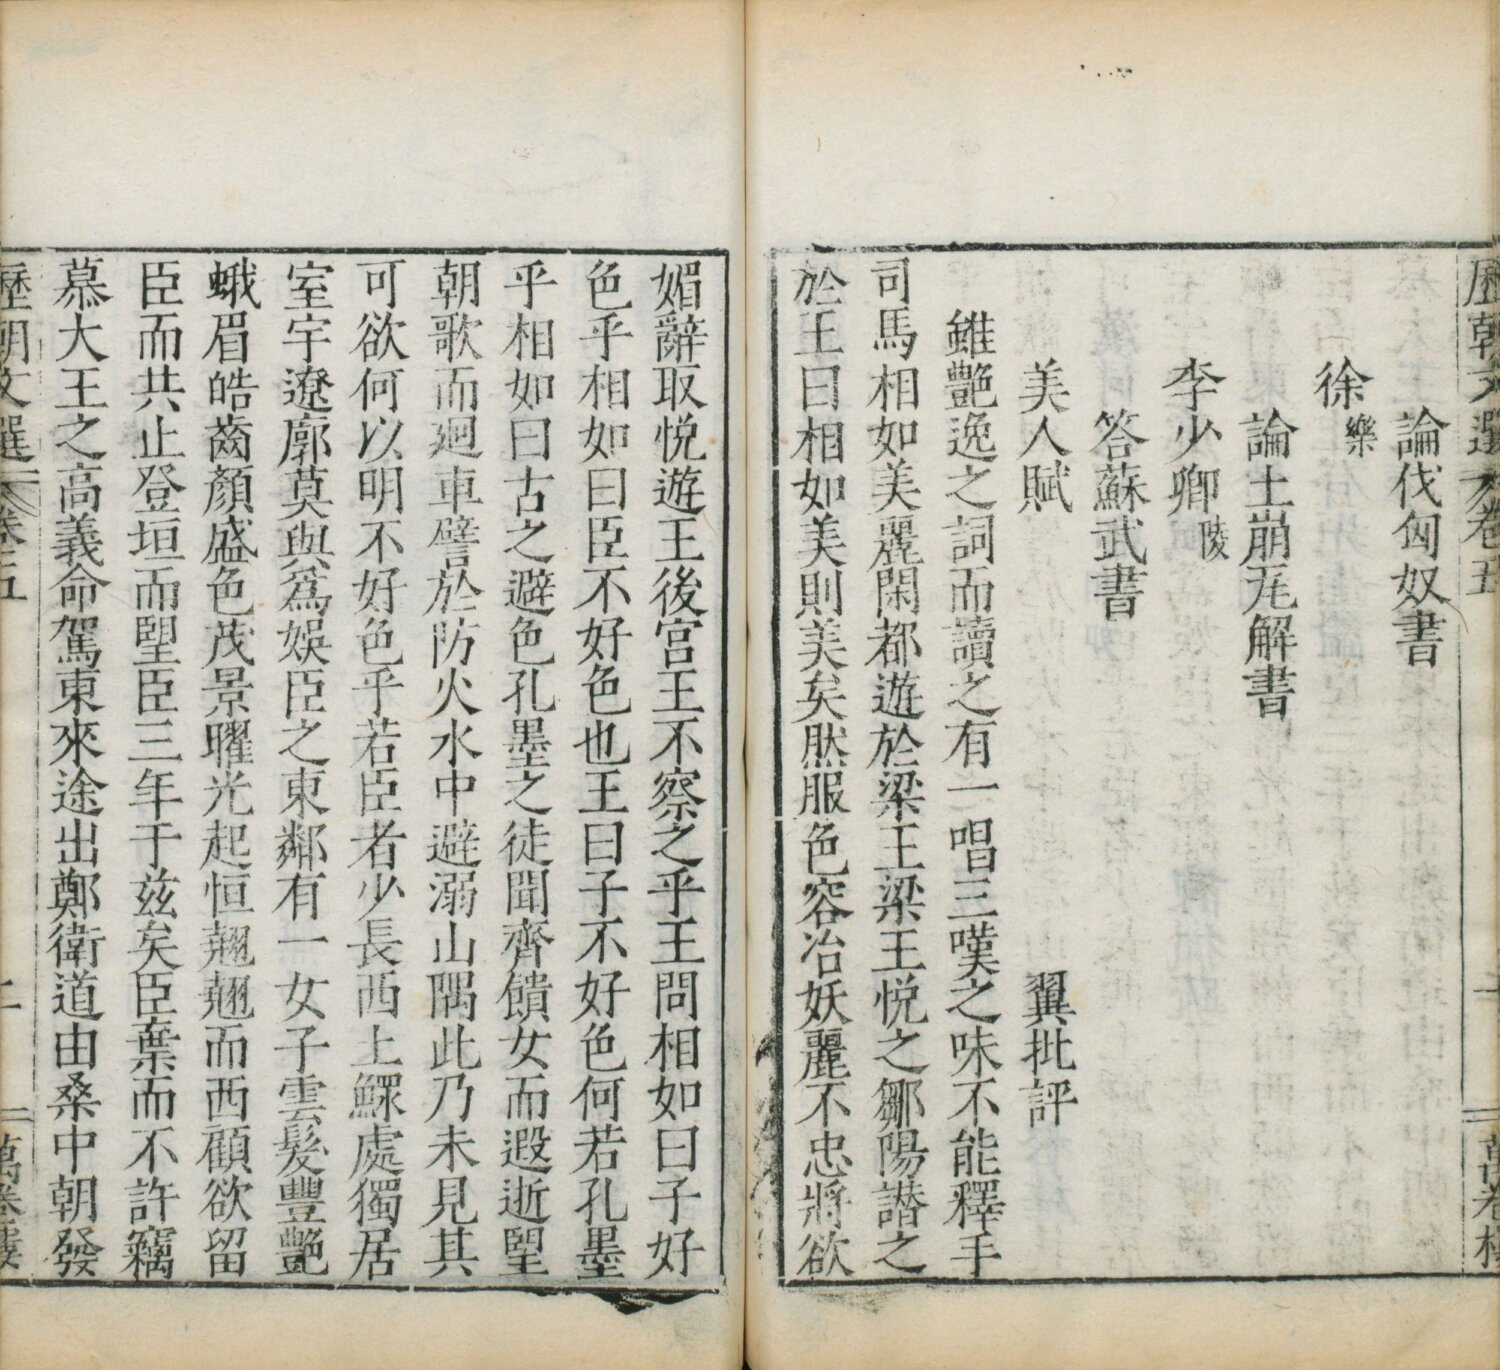 歷朝文選 卷五 二 萬卷樓
論伐匈奴書
徐樂
論土崩瓦解書
李少卿陵
答蘇武書
美人賦 翼批評
雖艷逸之詞而讀之有一唱三嘆之味不能釋手
司馬相如美麗閑都遊於梁王梁王悅之鄒陽譖之
於王曰相如美則美矣然服色容冶妖麗不忠將欲
媚辭取悅遊王後宮王不察之乎王問相如曰子好
色乎相如曰臣不好色也王曰子不好色何若孔墨
乎相如曰古之避色孔墨之徒聞齊饋女而遐逝望
朝歌而廻車譬於防火水中避溺山隅此乃未見其
可欲何以明不好色乎若臣者少長西上鰥處獨居
室宇遼廓莫與爲娛臣之東鄰有一女子雲髮豐艷
蛾眉皓齒顏盛色茂景曜光起恒翹翹而西顧欲留
臣而共止登垣而望臣三年于茲矣臣棄而不許竊
慕大王之高義命駕東來途出鄭衛道由桑中朝發
歷朝文選 卷五 二 萬卷樓